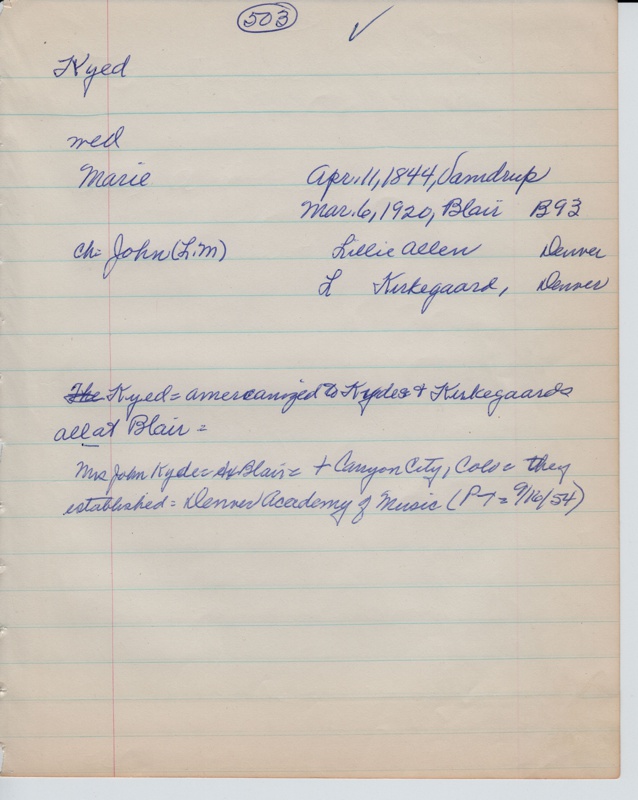 503 ✓
Kyed
med
Marie Apr. 11, 1844, Jamdrup
Mar. 6, 1920, Blair B93
ch= John (L.M) Lillie Allen Denver
L Kirkegaard, Denver
The Kyed = americanized to Kydes + Kirkegaards
all at Blair =
Mrs John Kyde = Blair = + Canyon City, Colo = they
established = Denver Academy of Music (P-T = 9/16/54)